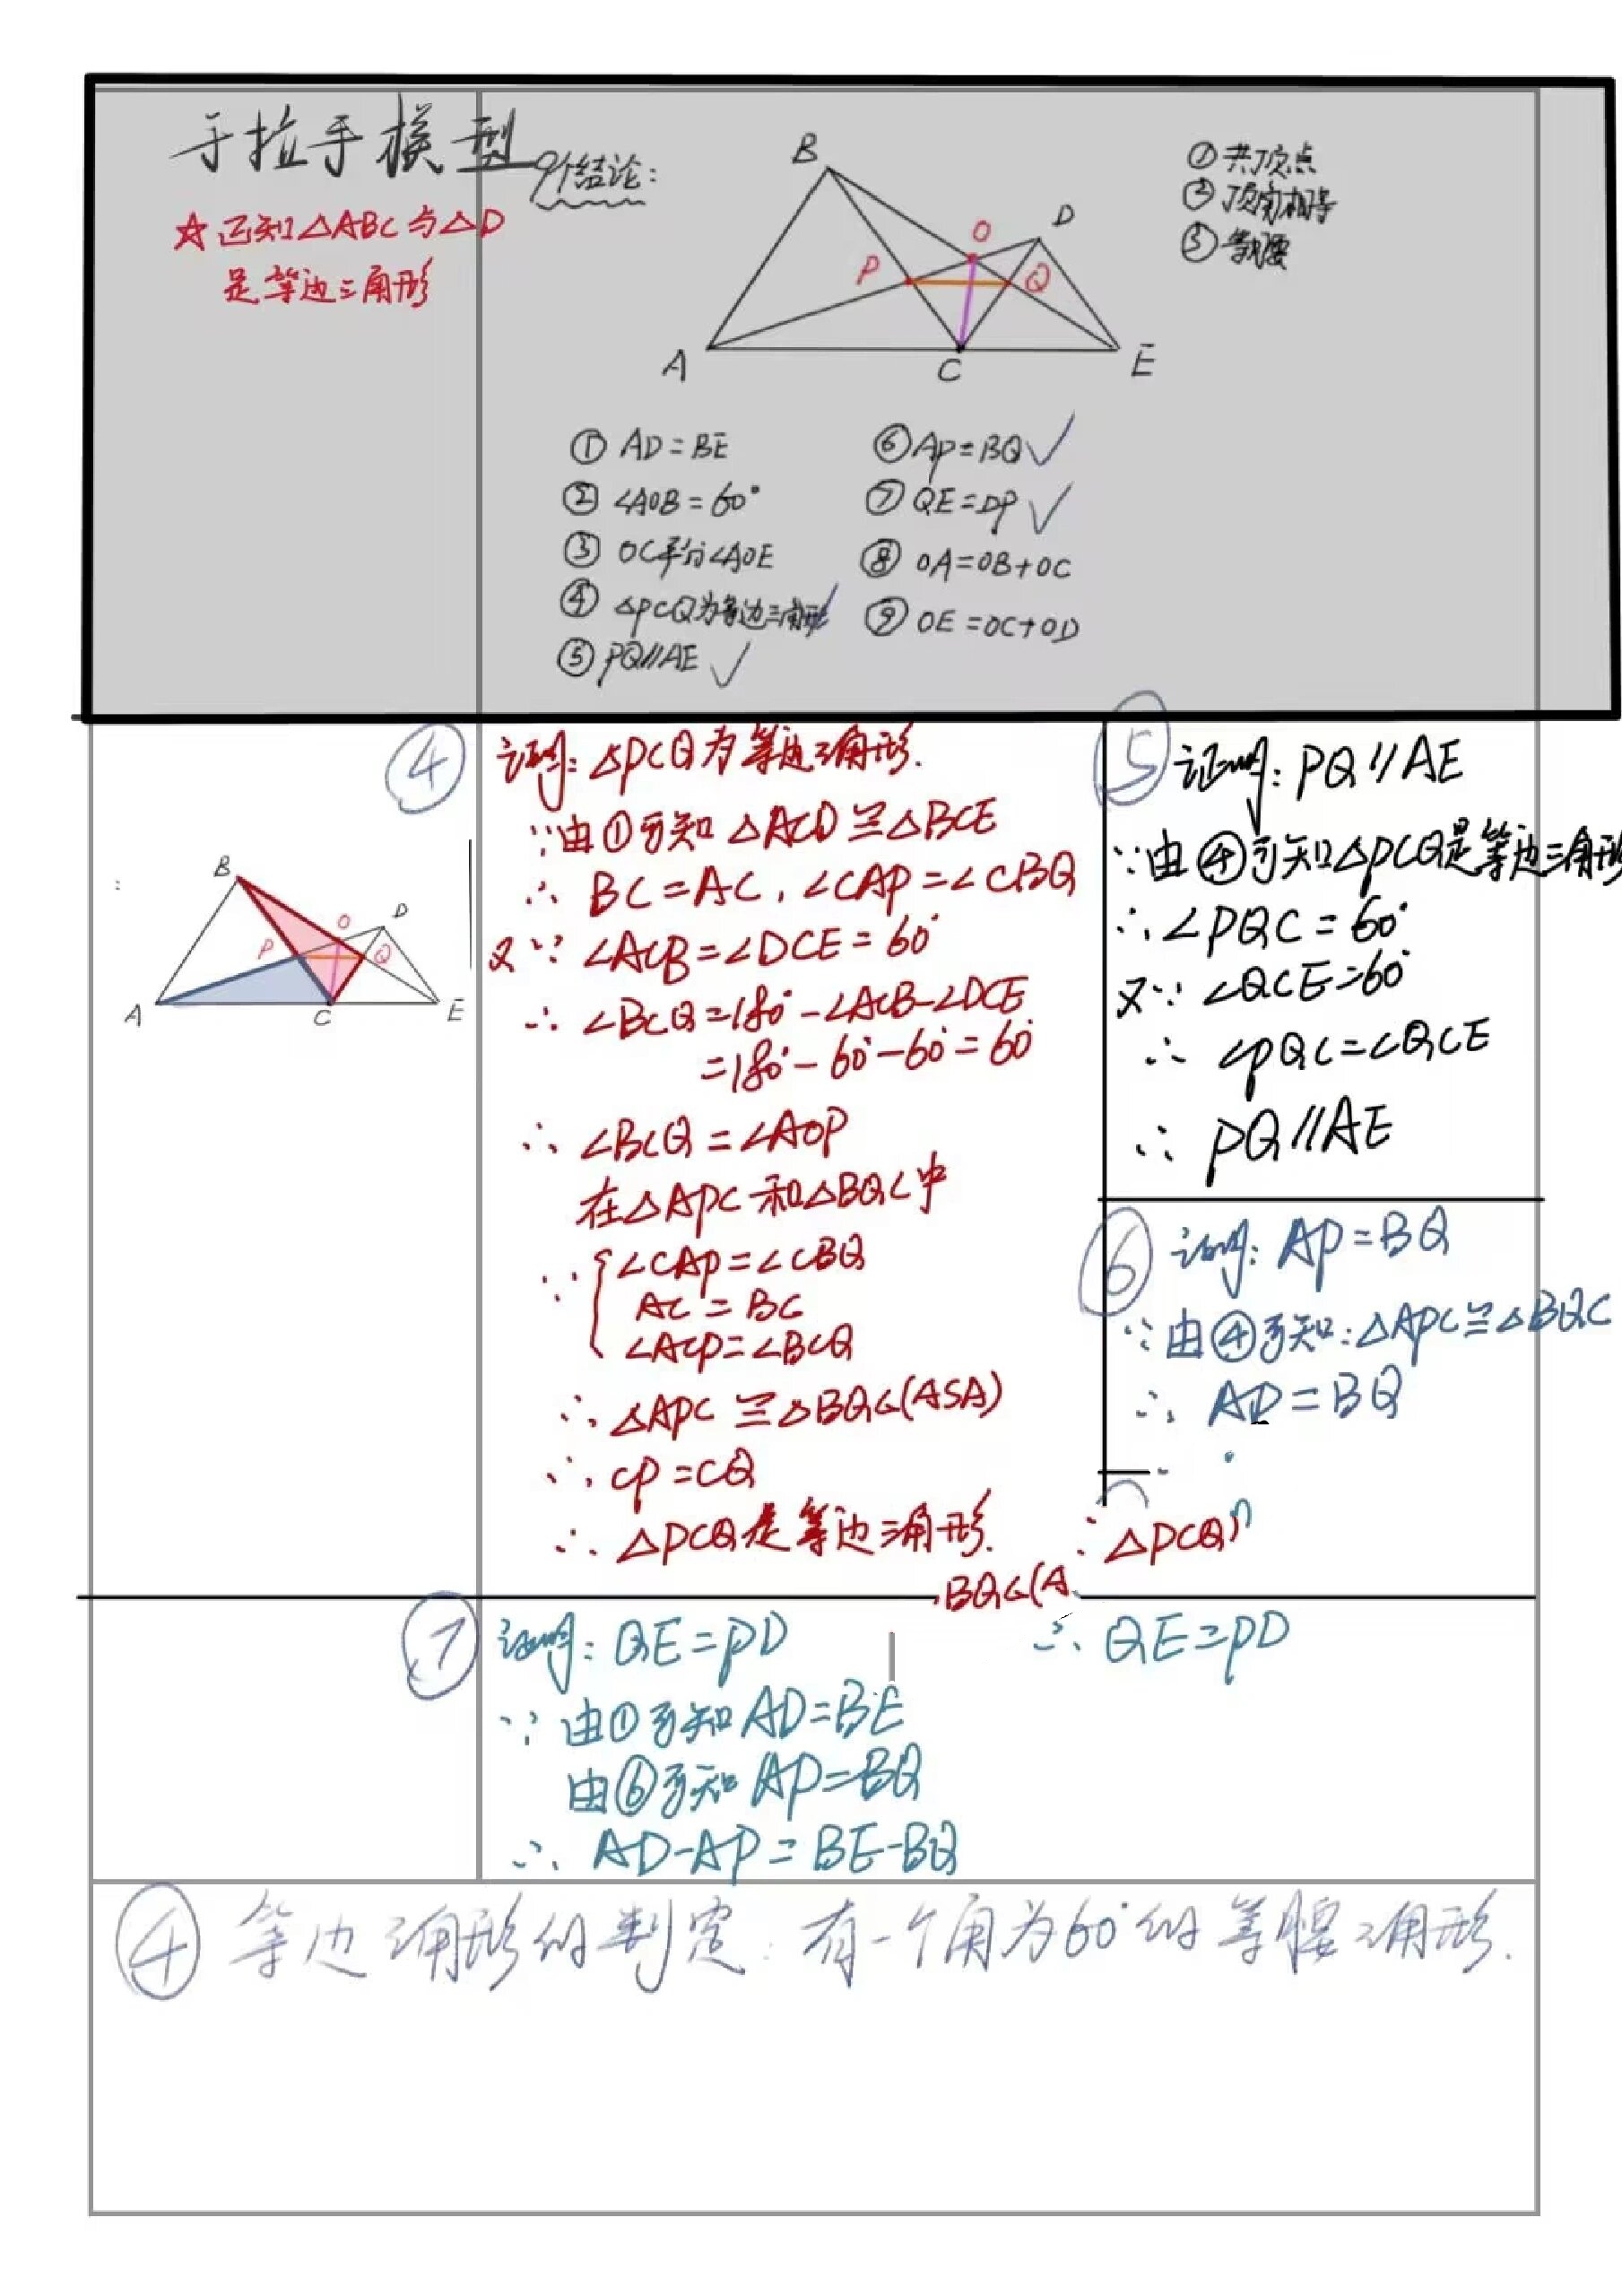 手拉手模型
9个结论:
☆ 已知△ABC与△D
是等边三角形
① 共顶点
② 顶角相等
③ 等腰
B
D
O
P
Q
A
C
E
① AD=BE
② ∠AOB=60°
③ OC平分∠AOE
④ △PCQ为等边三角形
⑤ PQ//AE ✓
⑥ AP=BQ ✓
⑦ QE=DP ✓
⑧ OA=OB+OC
⑨ OE=OC+OD
④
B
O
D
P
Q
A
C
E
证明: △PCQ为等边三角形.
∵由①可知 △ACD≌△BCE
∴ BC=AC, ∠CAP=∠CBQ
又∵ ∠ACB=∠DCE=60°
∴ ∠BCQ=180°-∠ACB-∠DCE
=180°-60°-60°=60°
∴ ∠BCQ=∠AOP
在△APC和△BQC中
∵ { ∠CAP=∠CBQ
AC=BC
∠ACP=∠BCQ
∴ △APC≌△BQC(ASA)
∴ CP=CQ
∴ △PCQ是等边三角形.
⑤ 证明: PQ//AE
∵由④可知△PCQ是等边三角形
∴∠PQC=60°
又∵ ∠QCE=60°
∴ ∠PQC=∠QCE
∴ PQ//AE
⑥ 证明: AP=BQ
∵由④可知:△APC≌△BQC
∴ AP=BQ
∴ △PCQ
BQC(A
⑦ 证明: QE=PD
∵ 由①可知 AD=BE
由⑥可知 AP=BQ
∴ AD-AP=BE-BQ
∴ QE=PD
④ 等边三角形的判定: 有一个角为60°的等腰三角形.